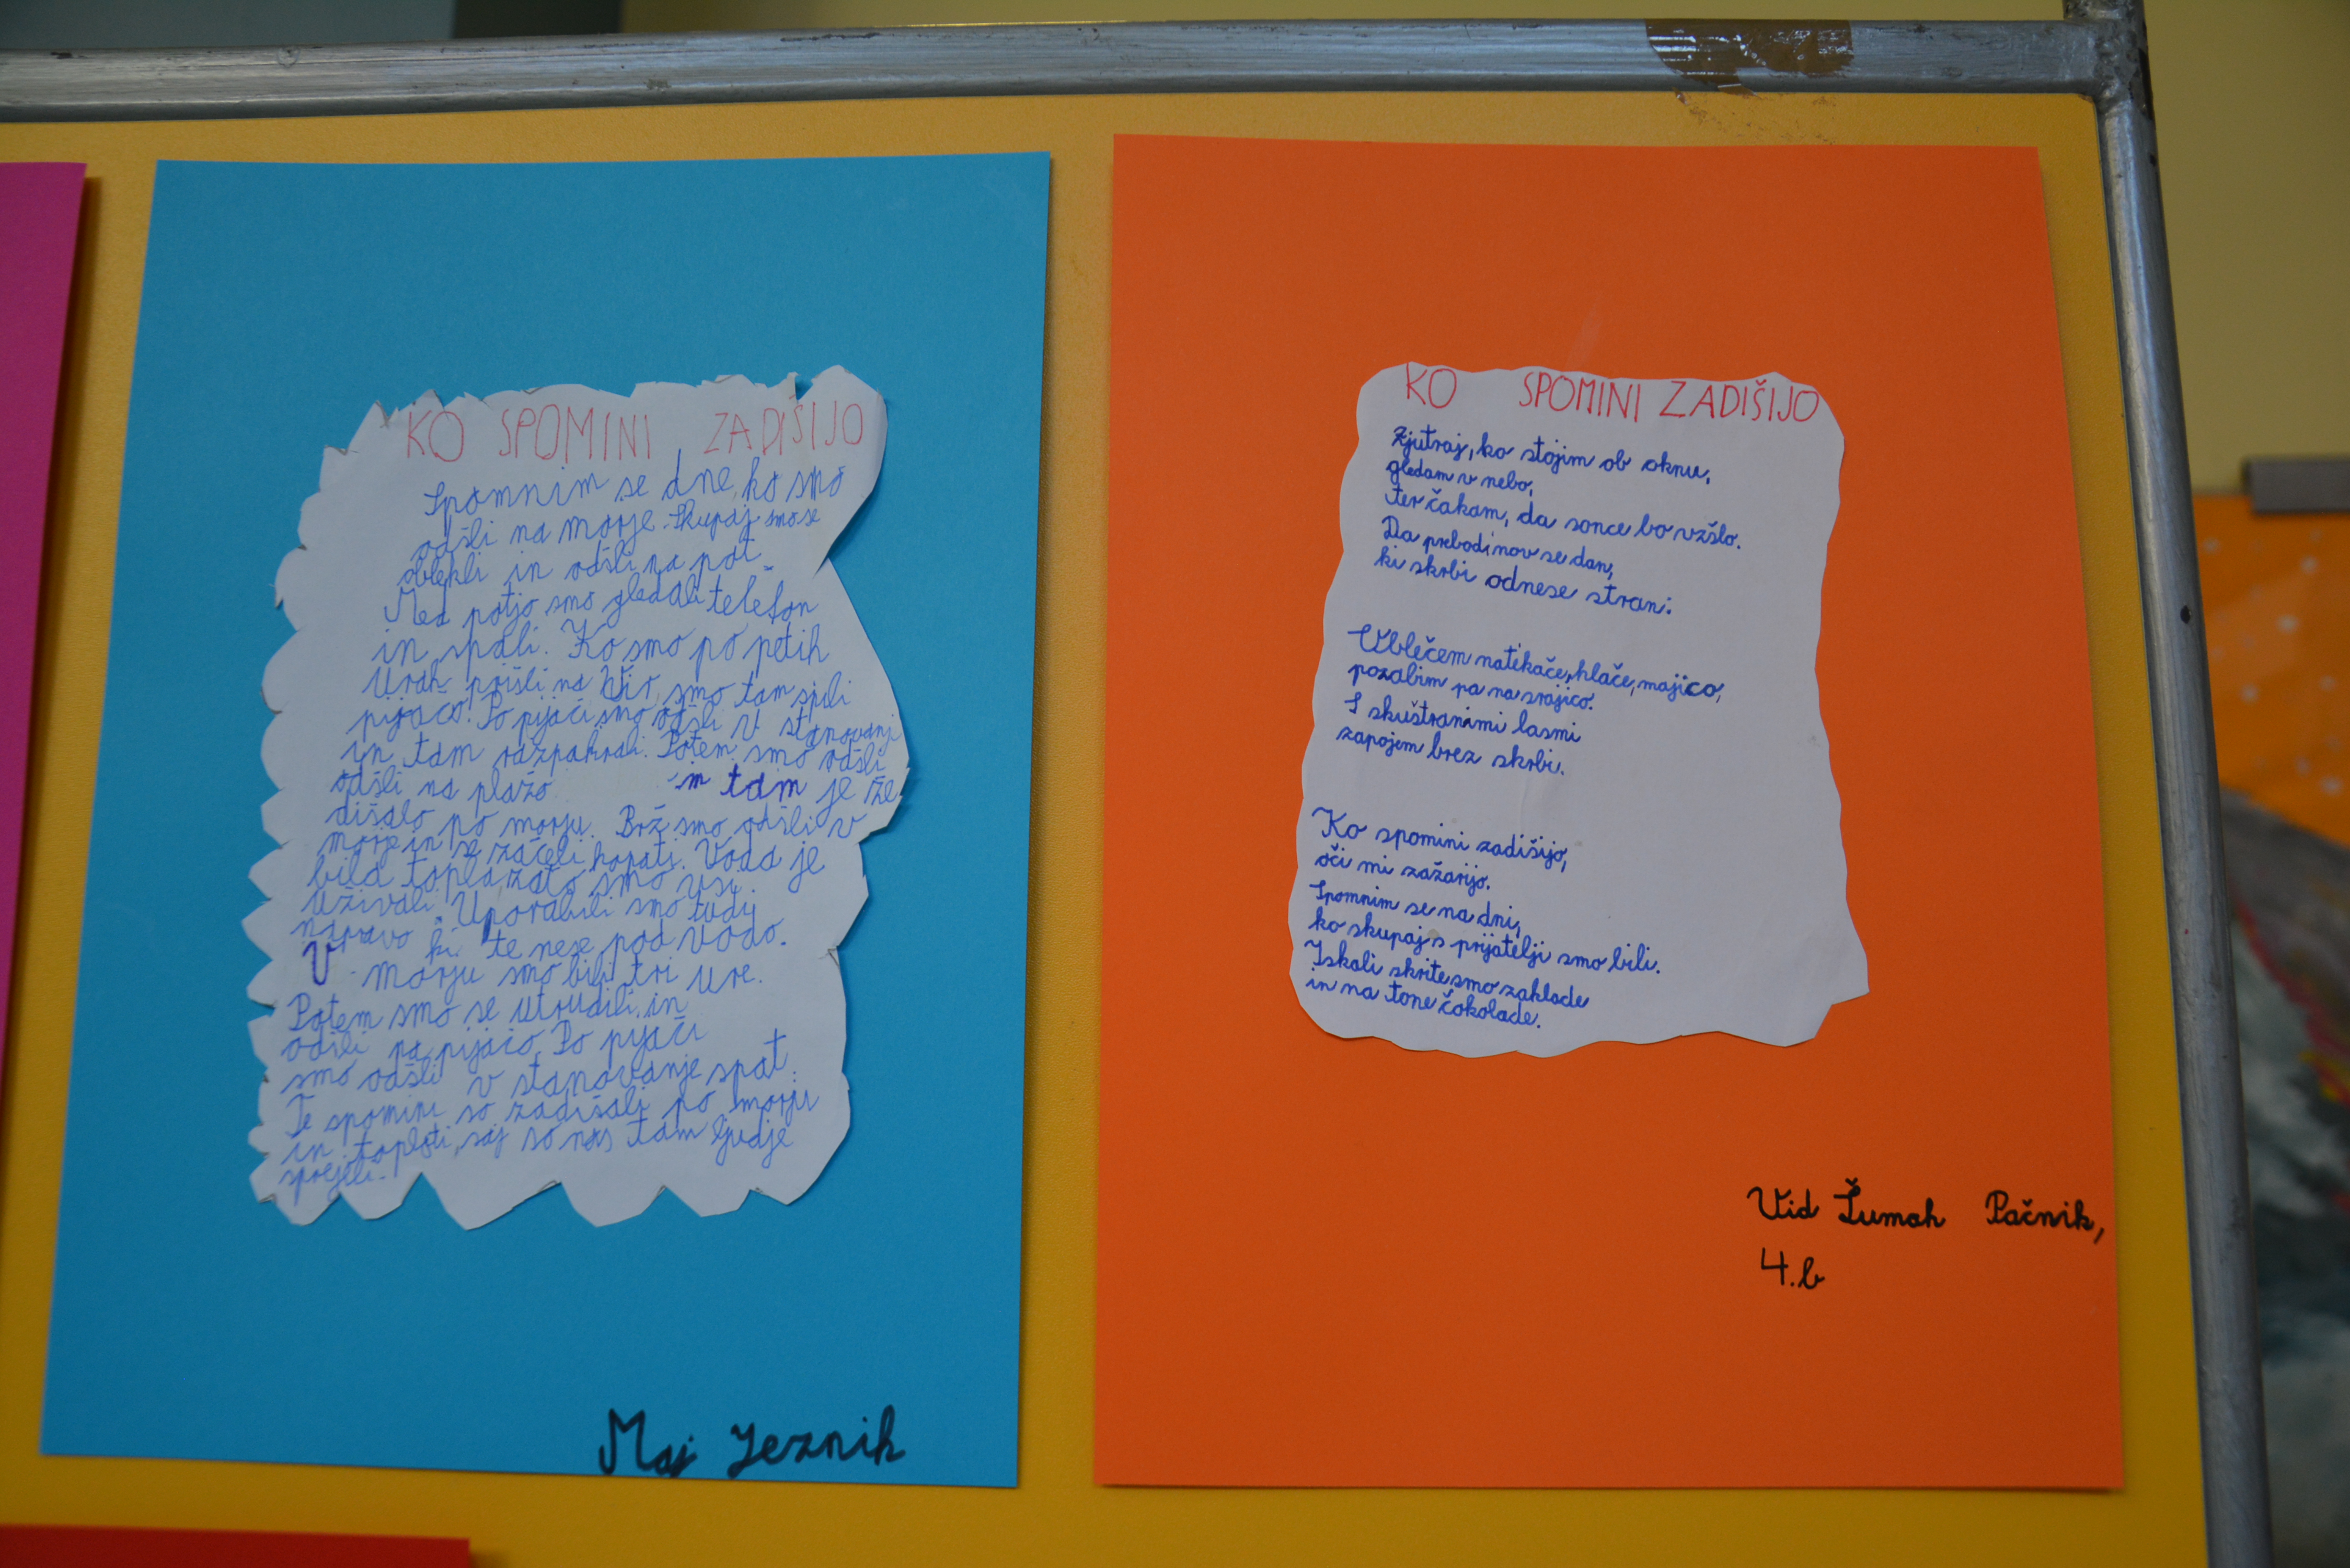 KO SPOMINI ZADIŠIJO
Spomnim se dne, ko smo
odšli na morje. Skupaj smo se
oblekli in odšli na pot.
Med potjo smo gledali telefon
in spali. Ko smo po petih
urah prišli na Vir, smo tam spili
pijačo. Po pijači smo odšli v stanovanj
in tam razpakirali. Potem smo odšli
odšli na plažo in tam je že
dišalo po morju. Brž smo odšli v
morje in se začeli kopati. Voda je
bila topla zato smo vsi
uživali. Uporabili smo tudi
napravo ki te nese pod vodo.
V morju smo bili tri ure.
Potem smo se utrudili in
odšli na pijačo. Po pijači
smo odšli v stanovanje spat.
Te spomini so zadišali po morju
in toploti, saj so nas tam ljudje
sprejeli.
Maj Jeznik
KO SPOMINI ZADIŠIJO
Zjutraj, ko stojim ob oknu,
gledam v nebo,
ter čakam, da sonce bo vzšlo.
Da prebodi nov se dan,
ki skrbi odnese stran.
Oblečem natikače, hlače, majico,
pozabim pa na srajico.
S skuštranimi lasmi
zapojem brez skrbi.
Ko spomini zadišijo,
oči mi zažarijo.
Spomnim se na dni,
ko skupaj s prijatelji smo bili.
Iskali skrite smo zaklade
in na tone čokolade.
Vid Šumah Pačnik,
4.b